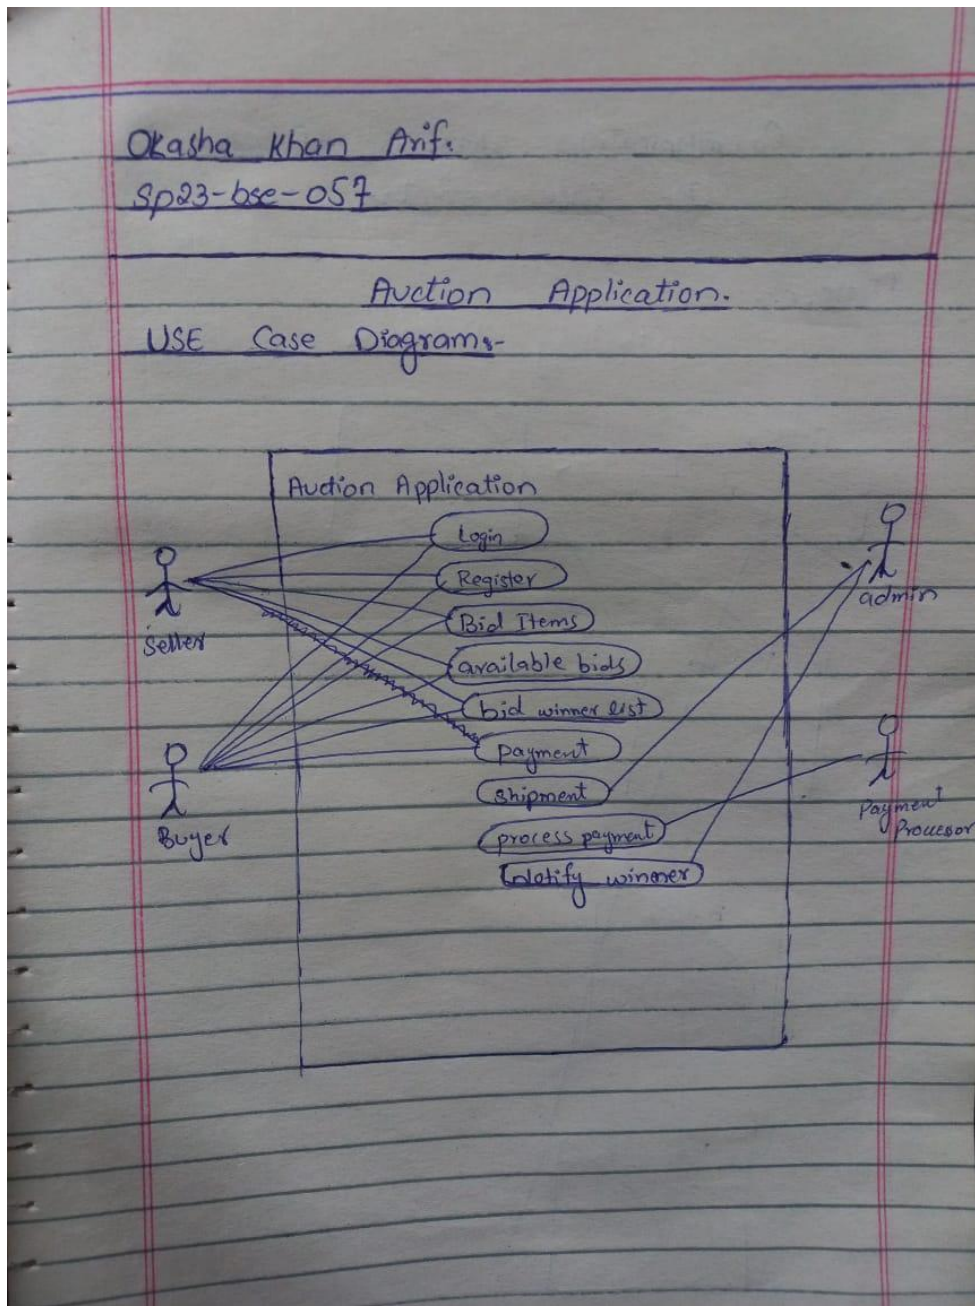 Okasha Khan Arif.
Sp23-bse-057
Auction Application.
USE Case Diagrams-
Auction Application
Login
Register
Bid Items
available bids
bid winner list
payment
shipment
process payment
Notify winner
Seller
Buyer
admin
Payment
Processor